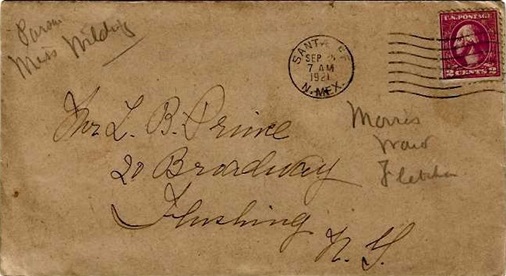 Miss
SANTA FE
SEP
7 AM
1921
N. MEX.
U.S. POSTAGE
2 CENTS 2
Mr L. B. Prince
20 Broadway
Flushing
N. Y.
Morris
Ward
Fletcher